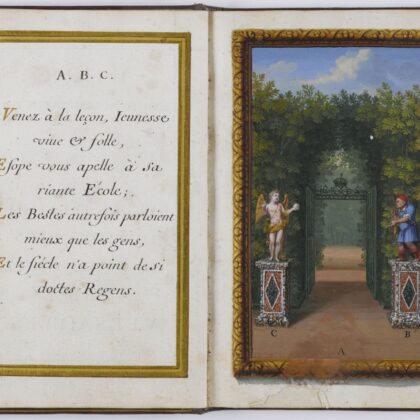 A. B. C.
Venez à la leçon, Ieunesse
viue & folle,
Esope vous apelle à sa
riante Ecole;
Les Bestes autrefois parloient
mieux que les gens,
Et le siécle n'a point de si
doctes Regens.
C
B
A